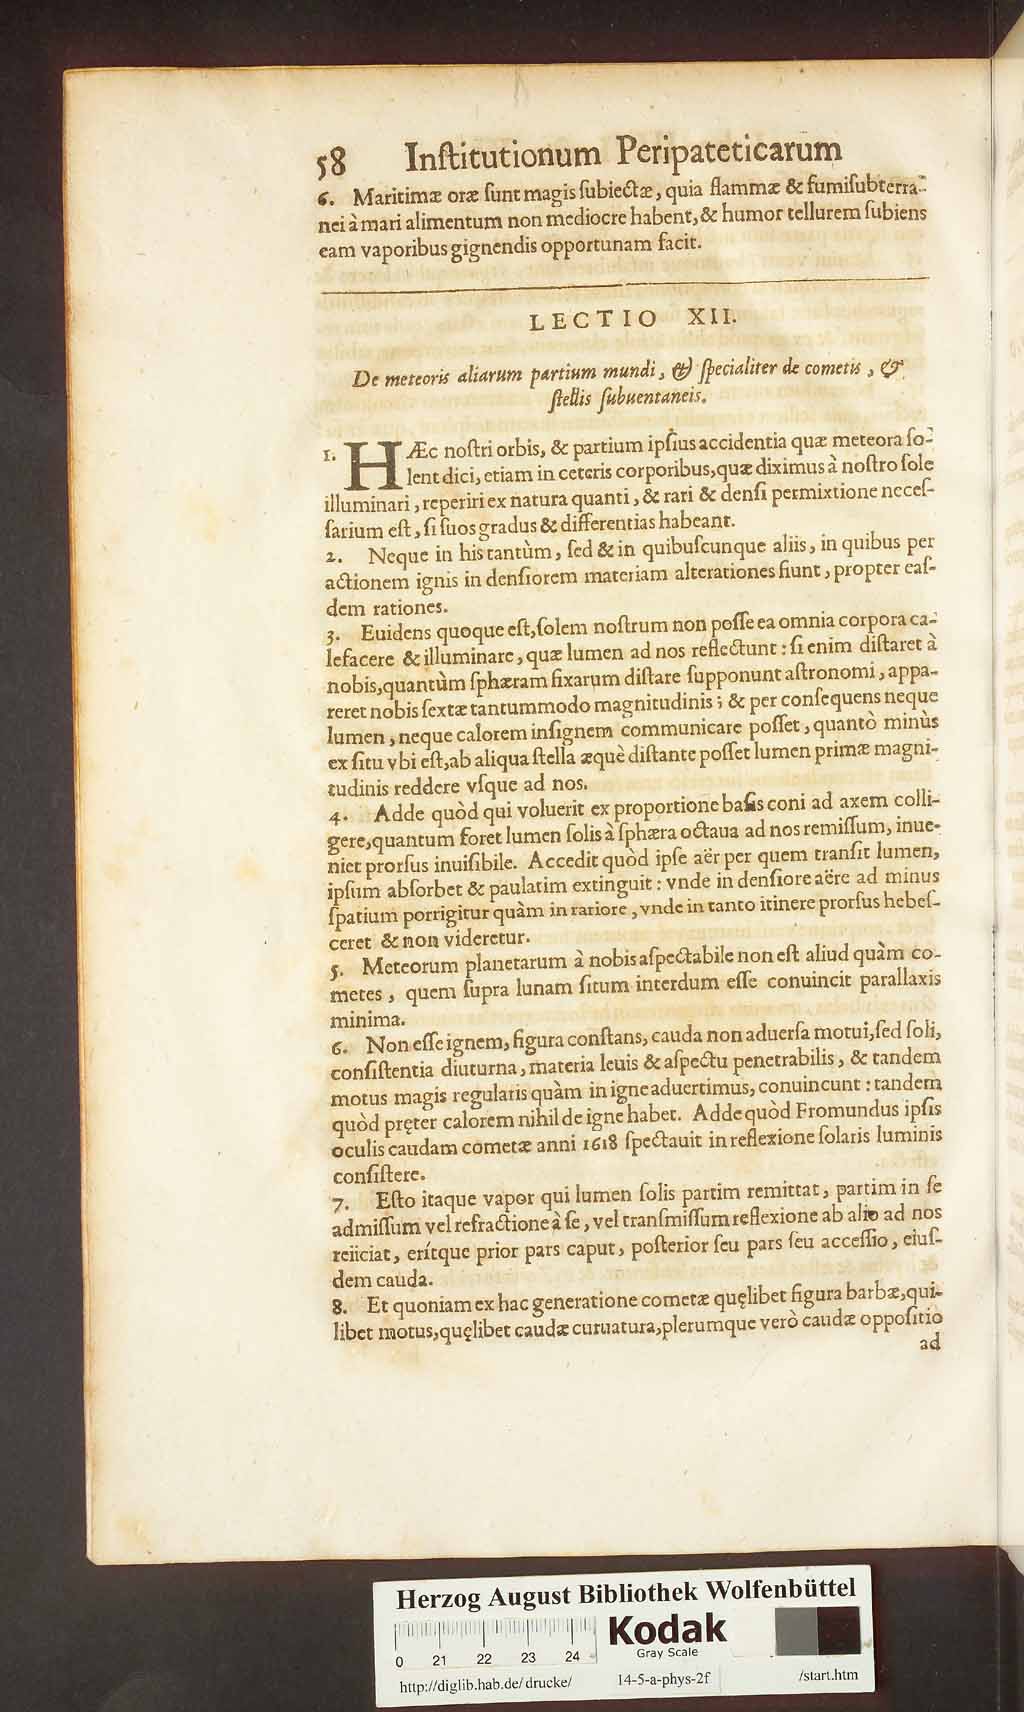 58 Inſtitutionum Peripateticarum
6. Maritimæ oræ ſunt magis ſubiectæ, quia flammæ & fumi ſubterra-
nei à mari alimentum non mediocre habent, & humor tellurem ſubiens
eam vaporibus gignendis opportunam facit.
LECTIO XII.
De meteoris aliarum partium mundi, & ſpecialiter de cometis, &
ſtellis ſubuentaneis.
1. HÆc noſtri orbis, & partium ipſius accidentia quæ meteora ſo-
lent dici, etiam in ceteris corporibus, quæ diximus à noſtro ſole
illuminari, reperiri ex natura quanti, & rari & denſi permixtione neceſ-
ſarium eſt, ſi ſuos gradus & differentias habeant.
2. Neque in his tantùm, ſed & in quibuſcunque aliis, in quibus per
actionem ignis in denſiorem materiam alterationes fiunt, propter eaſ-
dem rationes.
3. Euidens quoque eſt, ſolem noſtrum non poſſe ea omnia corpora ca-
lefacere & illuminare, quæ lumen ad nos reflectunt: ſi enim diſtaret à
nobis, quantùm ſphæram fixarum diſtare ſupponunt aſtronomi, appa-
reret nobis ſextæ tantummodo magnitudinis; & per conſequens neque
lumen, neque calorem inſignem communicare poſſet, quantò minùs
ex ſitu vbi eſt, ab aliqua ſtella æquè diſtante poſſet lumen primæ magni-
tudinis reddere vſque ad nos.
4. Adde quòd qui voluerit ex proportione baſis coni ad axem colli-
gere, quantum foret lumen ſolis à ſphæra octaua ad nos remiſſum, inue-
niet prorſus inuiſibile. Accedit quòd ipſe aër per quem tranſit lumen,
ipſum abſorbet & paulatim extinguit: vnde in denſiore aëre ad minus
ſpatium porrigitur quàm in rariore, vnde in tanto itinere prorſus hebeſ-
ceret & non videretur.
5. Meteorum planetarum à nobis aſpectabile non eſt aliud quàm co-
metes, quem ſupra lunam ſitum interdum eſſe conuincit parallaxis
minima.
6. Non eſſe ignem, figura conſtans, cauda non aduerſa motui, ſed ſoli,
conſiſtentia diuturna, materia leuis & aſpectu penetrabilis, & tandem
motus magis regularis quàm in igne aduertimus, conuincunt: tandem
quòd pręter calorem nihil de igne habet. Adde quòd Fromundus ipſis
oculis caudam cometæ anni 1618 ſpectauit in reflexione ſolaris luminis
conſiſtere.
7. Eſto itaque vapor qui lumen ſolis partim remittat, partim in ſe
admiſſum vel refractione à ſe, vel tranſmiſſum reflexione ab alio ad nos
reiiciat, erítque prior pars caput, poſterior ſeu pars ſeu acceſſio, eiuſ-
dem cauda.
8. Et quoniam ex hac generatione cometæ quęlibet figura barbæ, qui-
libet motus, quęlibet caudæ curuatura, plerumque verò caudæ oppoſitio
ad
Herzog August Bibliothek Wolfenbüttel
Kodak
Gray Scale
0 21 22 23 24
http://diglib.hab.de/drucke/ 14-5-a-phys-2f /start.htm